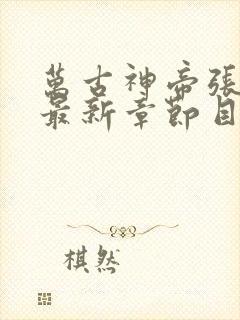 萬古神帝張
最新章節目
棋然